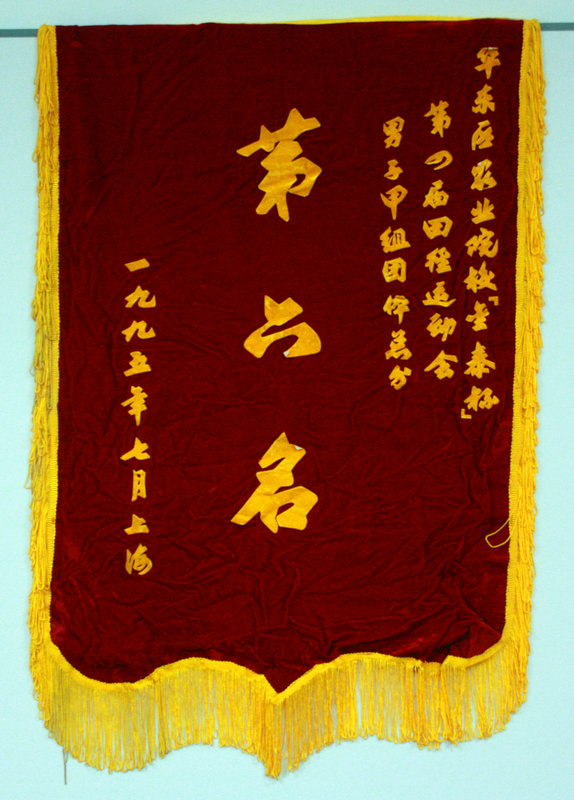 华东区农业院校「金泰杯」
第四届田径运动会
男子甲组团体总分
第六名
一九九五年七月上海